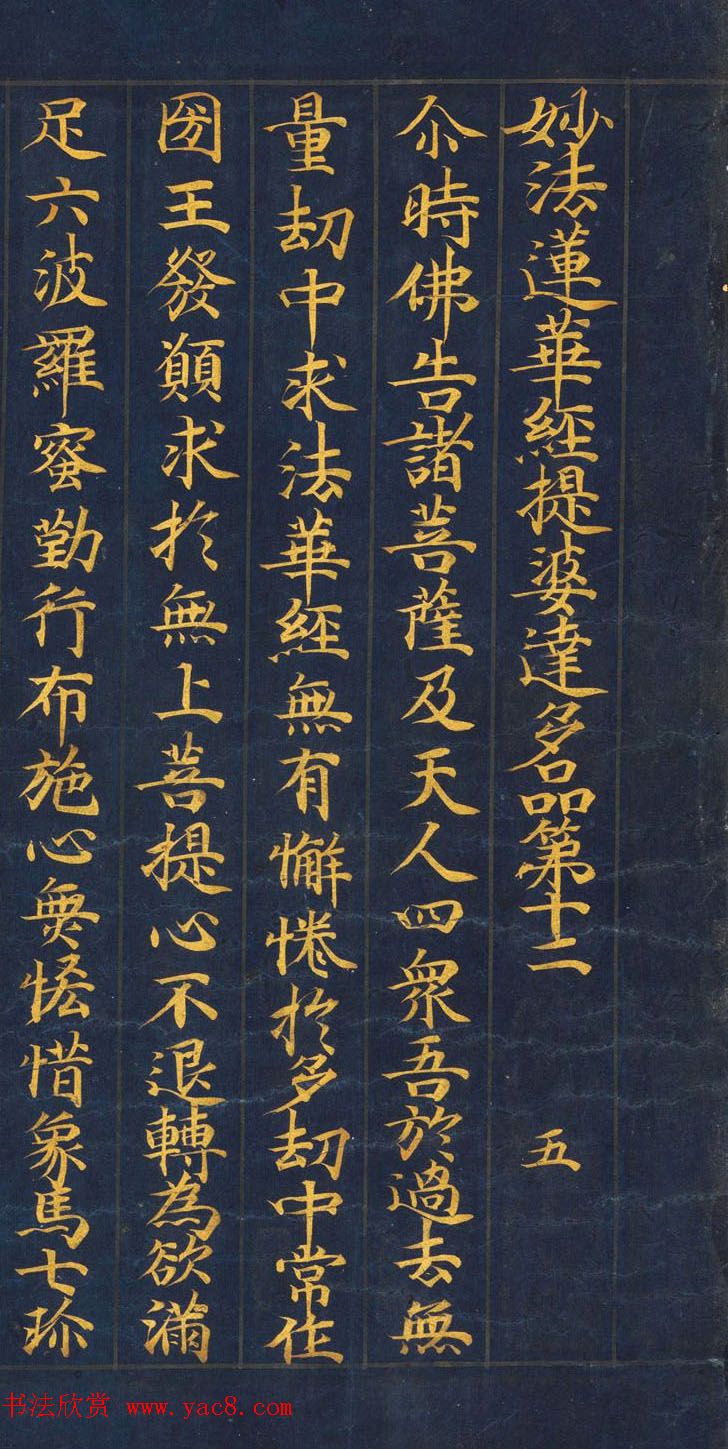 妙法蓮華經提婆達多品第十二　五
尒時佛告諸菩薩及天人四眾吾於過去無
量劫中求法華經無有懈惓於多劫中常作
囻王發願求於無上菩提心不退轉為欲滿
足六波羅蜜勤行布施心無悋惜象馬七珎
书法欣赏 www.yac8.com